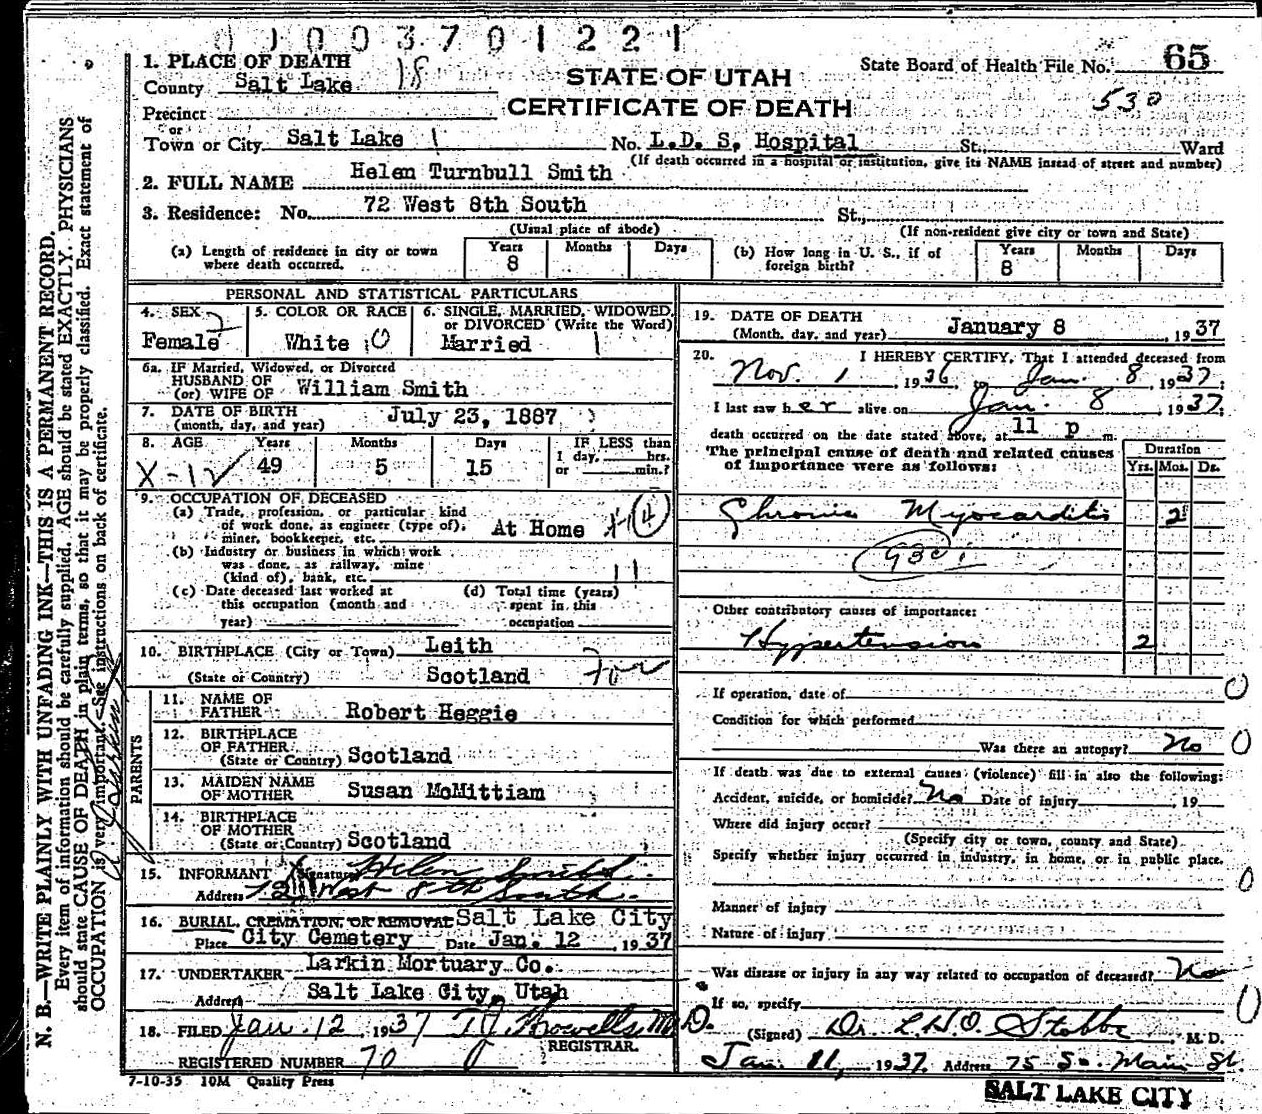 0 1 0 0 3 7 0 1 2 2 1
1. PLACE OF DEATH
County Salt Lake 18
STATE OF UTAH
CERTIFICATE OF DEATH
State Board of Health File No. 65
530
Precinct
or
Town or City Salt Lake 1 No. L.D.S. Hospital St., Ward
(If death occurred in a hospital or institution, give its NAME instead of street and number)
2. FULL NAME Helen Turnbull Smith
3. Residence: No. 72 West 8th South St.,
(Usual place of abode) (If non-resident give city or town and State)
(a) Length of residence in city or town where death occurred. Years 8 Months Days
(b) How long in U. S., if of foreign birth? Years 8 Months Days
PERSONAL AND STATISTICAL PARTICULARS
4. SEX Female 2
5. COLOR OR RACE White 0
6. SINGLE, MARRIED, WIDOWED, or DIVORCED (Write the Word) Married 1
6a. IF Married, Widowed, or Divorced
HUSBAND OF
(or) WIFE OF William Smith
7. DATE OF BIRTH
(month, day, and year) July 23, 1887
8. AGE Years Months Days IF LESS than
X-12 49 5 15 1 day, hrs.
or min.?
9. OCCUPATION OF DECEASED
(a) Trade, profession, or particular kind
of work done, as engineer (type of),
miner, bookkeeper, etc. At Home
(b) Industry or business in which work
was done, as railway, mine
(kind of), bank, etc. 11
(c) Date deceased last worked at
this occupation (month and
year)
(d) Total time (years)
spent in this
occupation
10. BIRTHPLACE (City or Town) Leith
(State or Country) Scotland
PARENTS
11. NAME OF
FATHER Robert Heggie
12. BIRTHPLACE
OF FATHER
(State or Country) Scotland
13. MAIDEN NAME
OF MOTHER Susan McMittiam
14. BIRTHPLACE
OF MOTHER
(State or Country) Scotland
15. INFORMANT (Signature) Helen Smith
Address 72 West 8th South.
16. BURIAL, CREMATION, OR REMOVAL Salt Lake City
Place City Cemetery Date Jan. 12 1937
17. UNDERTAKER Larkin Mortuary Co.
Address Salt Lake City, Utah
18. FILED Jan. 12 1937 M.D.
REGISTRAR.
REGISTERED NUMBER 70
7-10-35 10M Quality Press
19. DATE OF DEATH
(Month, day, and year) January 8 1937
20. I HEREBY CERTIFY, That I attended deceased from
Nov. 1, 1936, to Jan. 8, 1937;
I last saw her alive on Jan. 8, 1937;
death occurred on the date stated above, at 11 p m.
The principal cause of death and related causes
of importance were as follows:
Duration
Yrs. Mos. Ds.
Chronic Myocarditis 2
93c
Other contributory causes of importance:
Hypertension 2
If operation, date of 0
Condition for which performed
Was there an autopsy? No 0
If death was due to external causes (violence) fill in also the following:
Accident, suicide, or homicide? No Date of injury , 19
Where did injury occur?
(Specify city or town, county and State)
Specify whether injury occurred in industry, in home, or in public place.
0
Manner of injury
Nature of injury
Was disease or injury in any way related to occupation of deceased? No
If so, specify 0
(Signed) Dr. L.H.O. Stobbe, M. D.
Jan. 11, 1937. Address 75 So. Main St.
SALT LAKE CITY
N. B.—WRITE PLAINLY WITH UNFADING INK—THIS IS A PERMANENT RECORD.
Every item of information should be carefully supplied. AGE should be stated EXACTLY. PHYSICIANS
should state CAUSE OF DEATH in plain terms, so that it may be properly classified. Exact statement of
OCCUPATION is very important. See instructions on back of certificate.